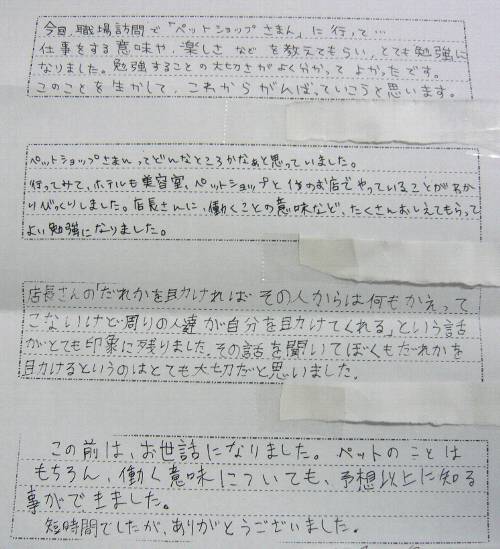 今回、職場訪問で「ペットショップさまん」に行って…
仕事をする意味や、楽しさなどを教えてもらい、とても勉強に
なりました。勉強することの大切さがよく分かってよかったです。
このことを生かして、これからがんばっていこうと思います。
ペットショップさまんってどんなところかなぁと思っていました。
行ってみて、ホテルも美容室、ペットショップと1つのお店でやっていることがわか
りびっくりしました。店長さんに、働くことの意味など、たくさんおしえてもらって
よい勉強になりました。
店長さんの「だれかを助ければその人からは何もかえって
こないけど周りの人達が自分を助けてくれる」という話
がとても印象に残りました。その話を聞いてぼくもだれかを
助けるというのはとても大切だと思いました。
この前は、お世話になりました。ペットのことは
もちろん、働く意味についても、予想以上に知る
事ができました。
短時間でしたが、ありがとうございました。